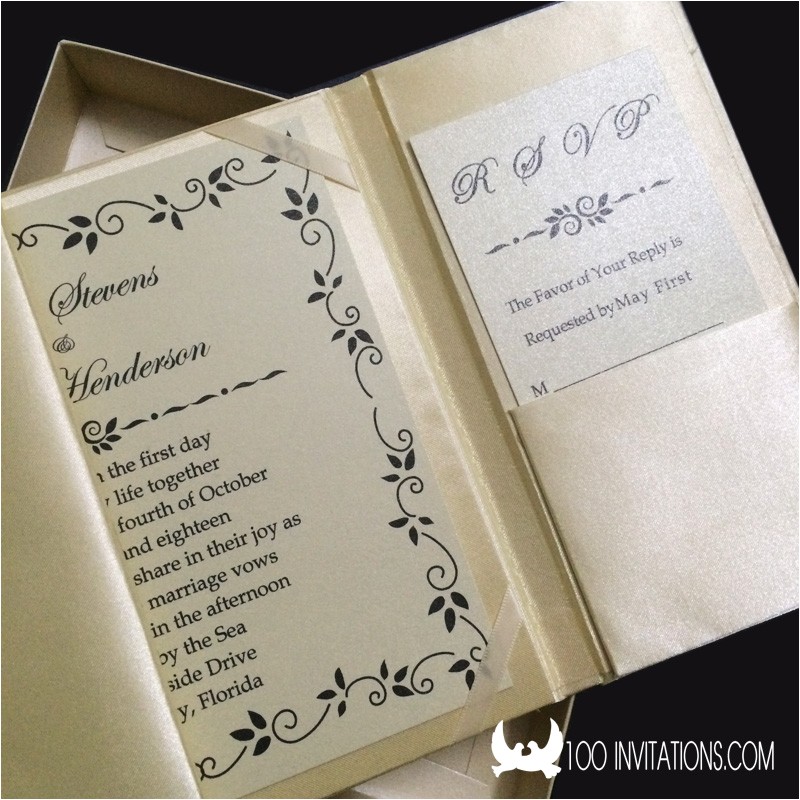 Stevens
&
Henderson
the first day
life together
fourth of October
and eighteen
share in their joy as
marriage vows
in the afternoon
by the Sea
side Drive
y, Florida
R S V P
The Favor of Your Reply is
Requested by May First
M
100 INVITATIONS.COM